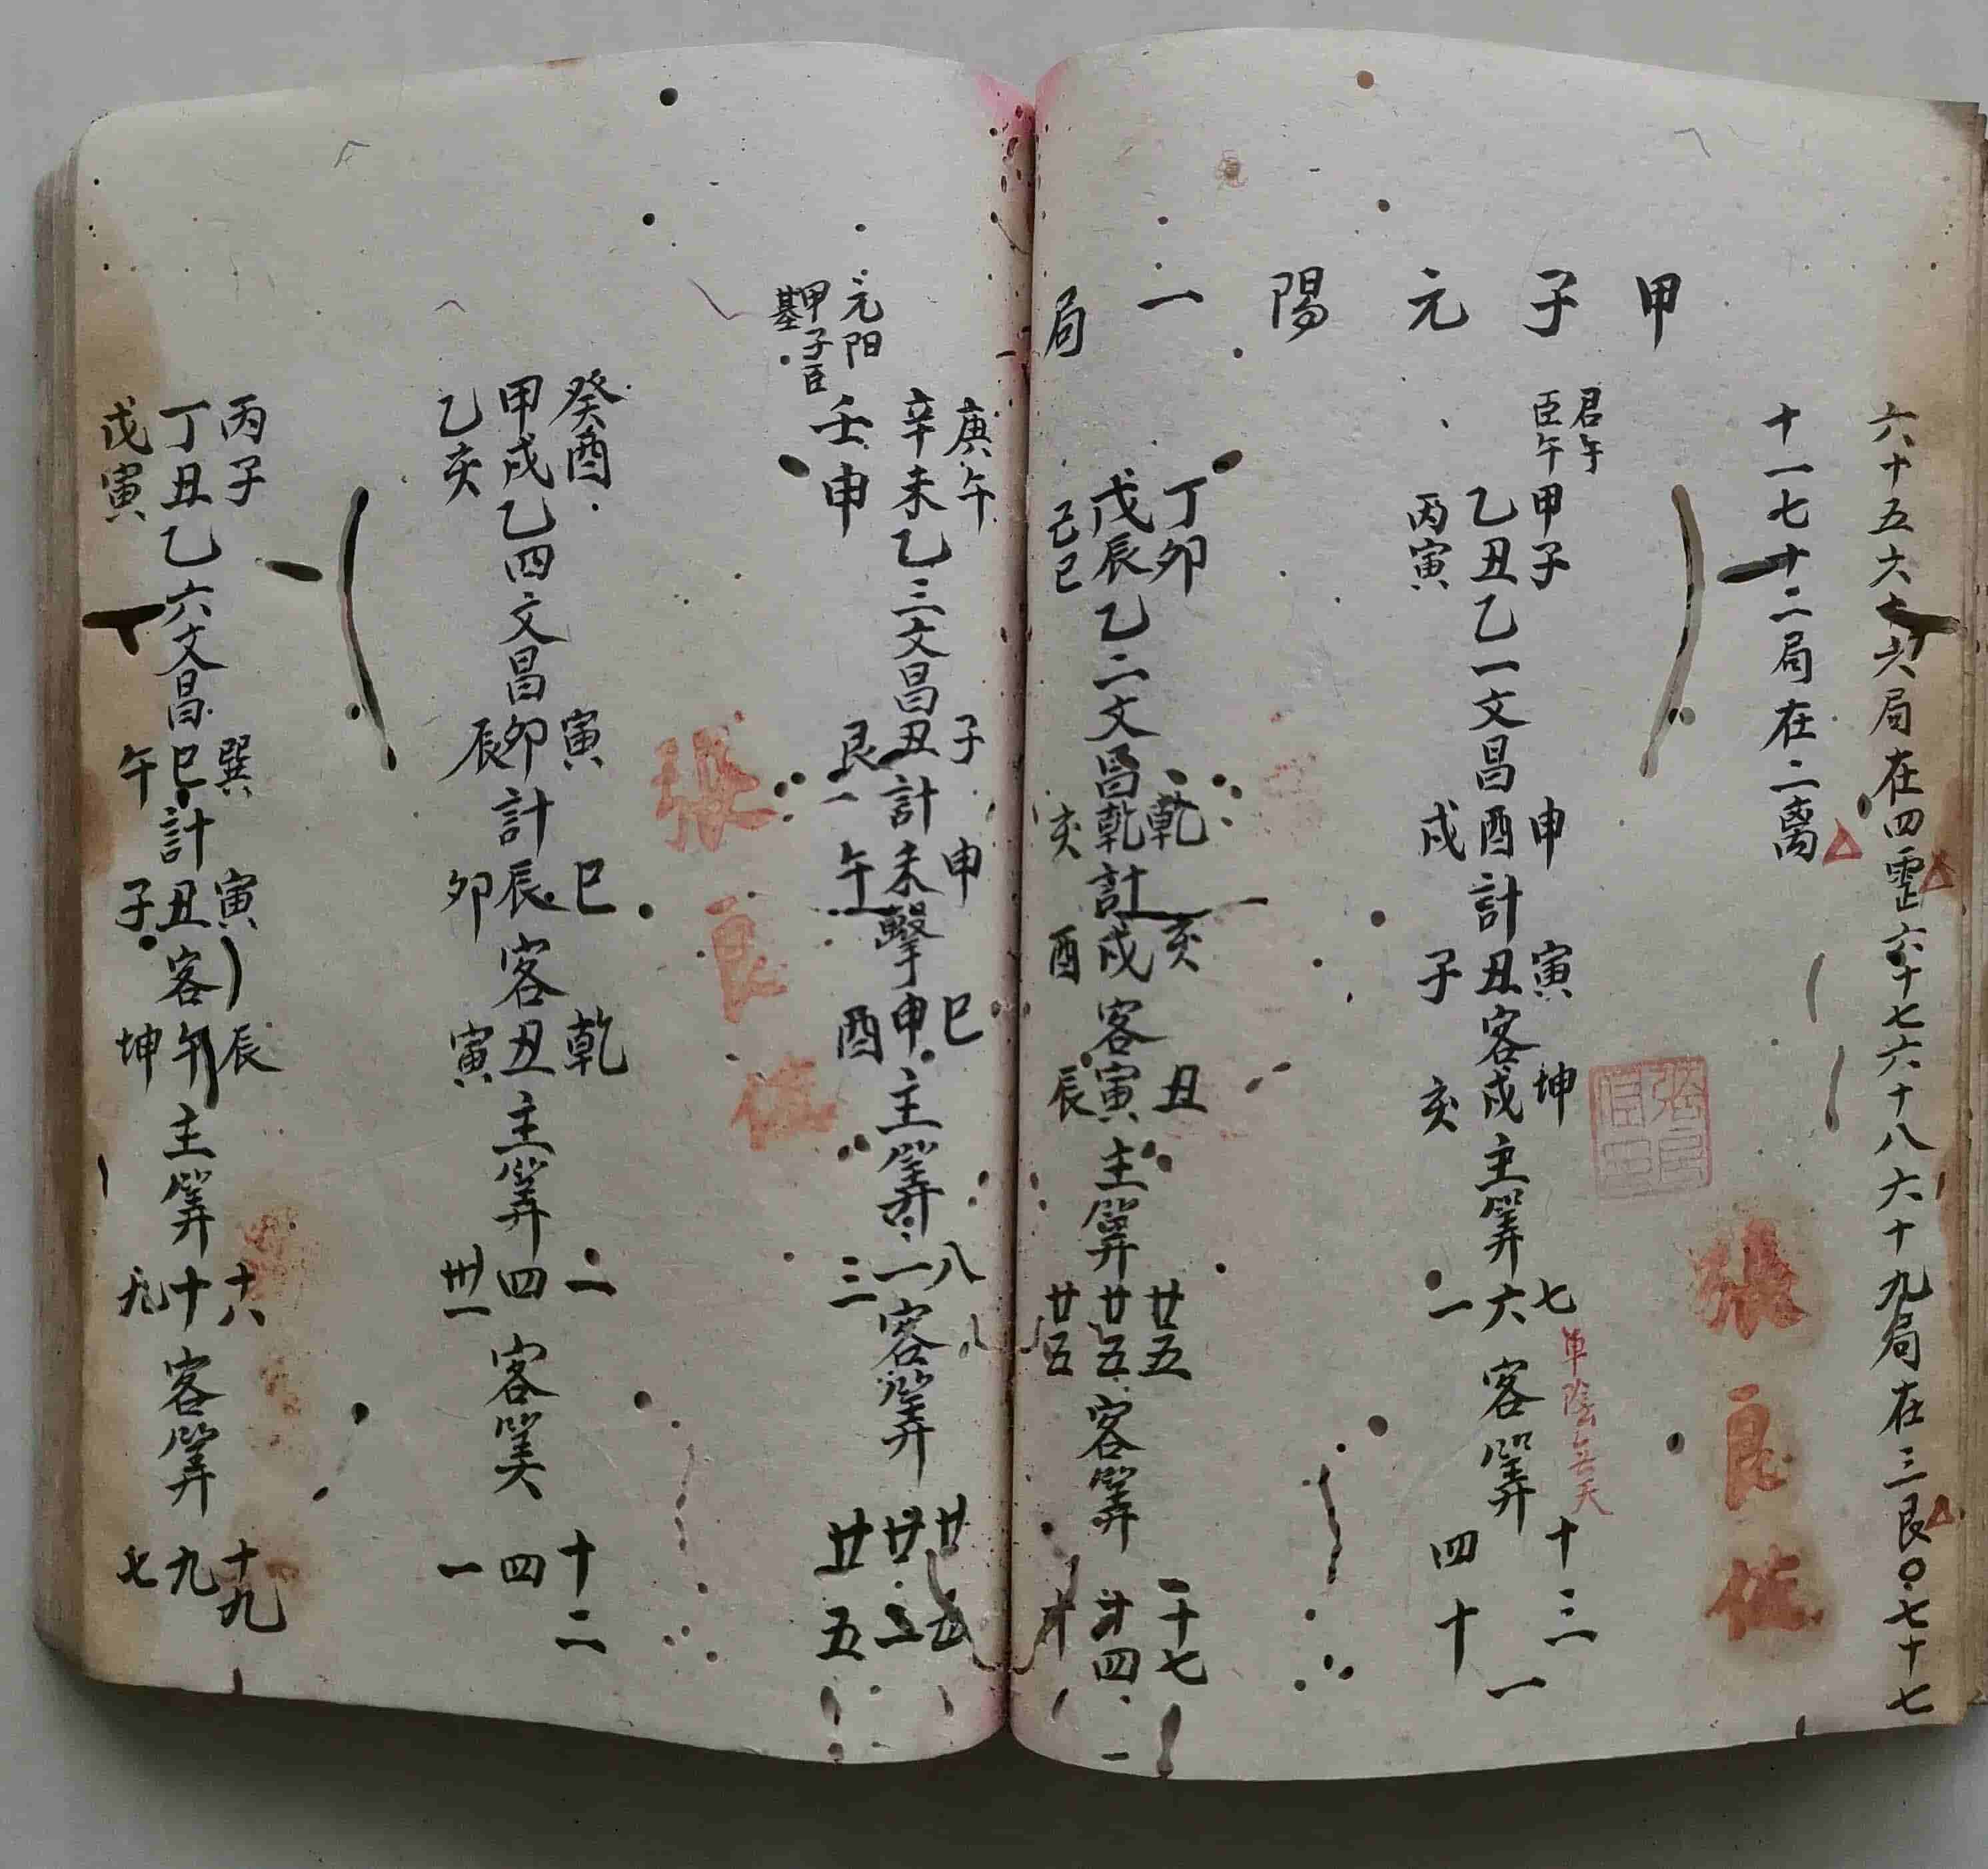 六十五六十六局在四震六十七六十八六十九局在三艮〇七十七
十一七十二局在二离
甲子元陽一局
君午
臣午
甲子 申 寅 坤 七 十三
乙丑乙一文昌酉計丑客戌主筭六客筭一
丙寅 戌 子 亥 一 四十
單陰
張良佐
丁卯 乾 亥 丑 廿五 二十七
戊辰乙二文昌乾計戌客寅主筭廿五客筭廿四
己巳 亥 酉 辰 廿五
元阳
甲子臣
基
庚午 子 申 巳 八 廿五
辛未乙三文昌丑計未擊申主筭一客筭廿二
壬申 艮 午 酉 三 廿五
張良佐
癸酉 寅 巳 乾 二 十二
甲戌乙四文昌卯計辰客丑主筭四客筭四
乙亥 辰 卯 寅 卅一 一
丙子 巽 寅 辰 十八 十九
丁丑乙六文昌巳計丑客午主筭十客筭九
戊寅 午 子 坤 九 七